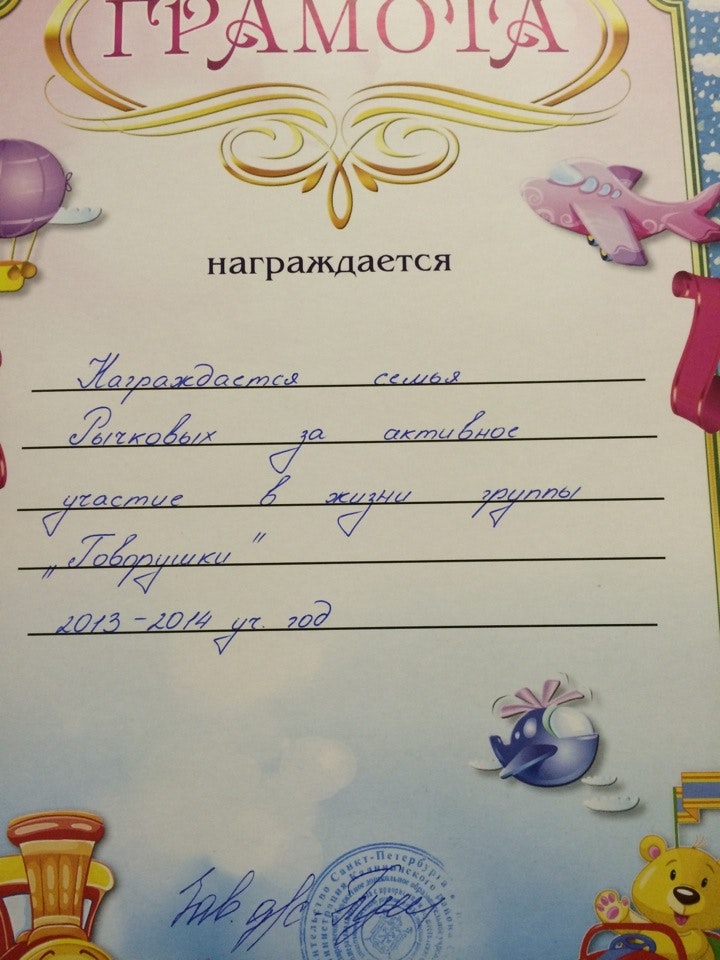 ГРАМОТА
награждается
Награждается семья
Рычковых за активное
участие в жизни группы
„Говорушки"
2013-2014 уч. год
Зав. д/с
Санкт-Петербурга